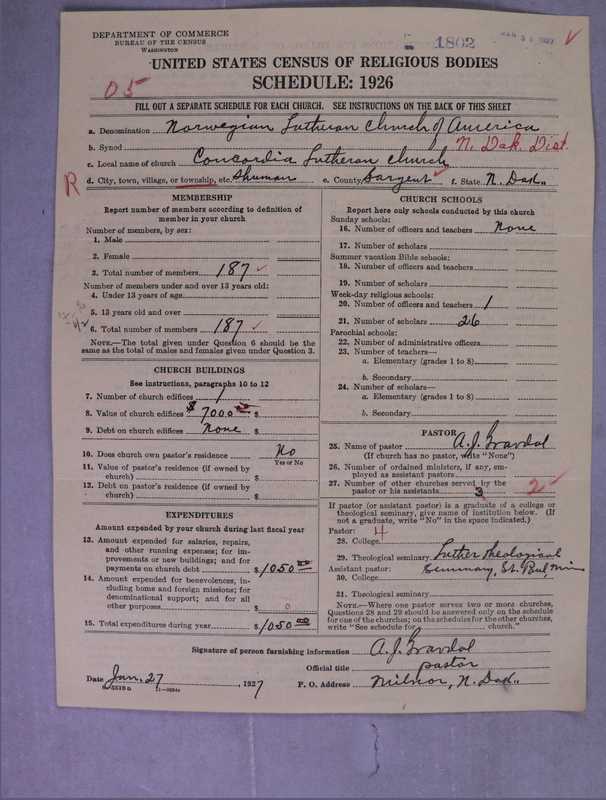 DEPARTMENT OF COMMERCE
BUREAU OF THE CENSUS
WASHINGTON
1802
JAN 31 1927
UNITED STATES CENSUS OF RELIGIOUS BODIES
05
SCHEDULE: 1926
FILL OUT A SEPARATE SCHEDULE FOR EACH CHURCH. SEE INSTRUCTIONS ON THE BACK OF THIS SHEET
a. Denomination Norwegian Lutheran Church of America
b. Synod N. Dak. Dist.
c. Local name of church Concordia Lutheran Church
R d. City, town, village, or township, etc. Shuman e. County Sargent f. State N. Dak.
MEMBERSHIP
Report number of members according to definition of
member in your church
Number of members, by sex:
1. Male
2. Female
3. Total number of members 187
Number of members under and over 13 years old:
4. Under 13 years of age
5. 13 years old and over
6. Total number of members 187
NOTE.—The total given under Question 6 should be the
same as the total of males and females given under Question 3.
CHURCH BUILDINGS
See instructions, paragraphs 10 to 12
7. Number of church edifices 1
8. Value of church edifices $ 7000 $
9. Debt on church edifices None $
10. Does church own pastor's residence No
Yes or No
11. Value of pastor's residence (if owned by
church) $
12. Debt on pastor's residence (if owned by
church) $
EXPENDITURES
Amount expended by your church during last fiscal year
13. Amount expended for salaries, repairs,
and other running expenses; for im-
provements or new buildings; and for
payments on church debt $ 1050 00
14. Amount expended for benevolences, in-
cluding home and foreign missions; for
denominational support; and for all
other purposes $ 0
15. Total expenditures during year $ 1050 00
CHURCH SCHOOLS
Report here only schools conducted by this church
Sunday schools:
16. Number of officers and teachers None
17. Number of scholars
Summer vacation Bible schools:
18. Number of officers and teachers
19. Number of scholars
Week-day religious schools:
20. Number of officers and teachers 1
21. Number of scholars 26
Parochial schools:
22. Number of administrative officers
23. Number of teachers—
a. Elementary (grades 1 to 8)
b. Secondary
24. Number of scholars—
a. Elementary (grades 1 to 8)
b. Secondary
PASTOR
25. Name of pastor A. J. Gravdal
(If church has no pastor, write "None")
26. Number of ordained ministers, if any, em-
ployed as assistant pastors
27. Number of other churches served by the
pastor or his assistants 3 2
If pastor (or assistant pastor) is a graduate of a college or
theological seminary, give name of institution below. (If
not a graduate, write "No" in the space indicated.)
Pastor: 4
28. College
29. Theological seminary Luther Theological
Assistant pastor: Seminary, St. Paul, Min
30. College
31. Theological seminary
NOTE.—Where one pastor serves two or more churches,
Questions 28 and 29 should be answered only on the schedule
for one of the churches; on the schedules for the other churches,
write "See schedule for church."
Signature of person furnishing information A. J. Gravdal
Official title pastor
Date Jan. 27, 1927 P. O. Address Milnor, N. Dak.